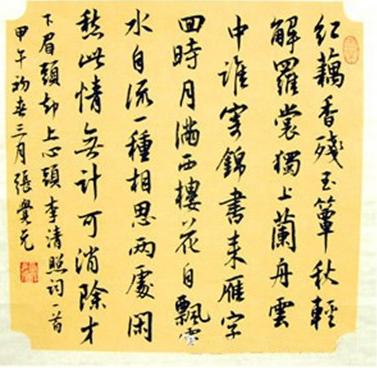 紅藕香殘玉簟秋輕
解羅裳獨上蘭舟雲
中誰寄錦書来雁字
回時月滿西樓花自飄零
水自流一種相思兩處閑
愁此情無計可消除才
下眉頭却上心頭李清照詞一首
甲午初春三月張元